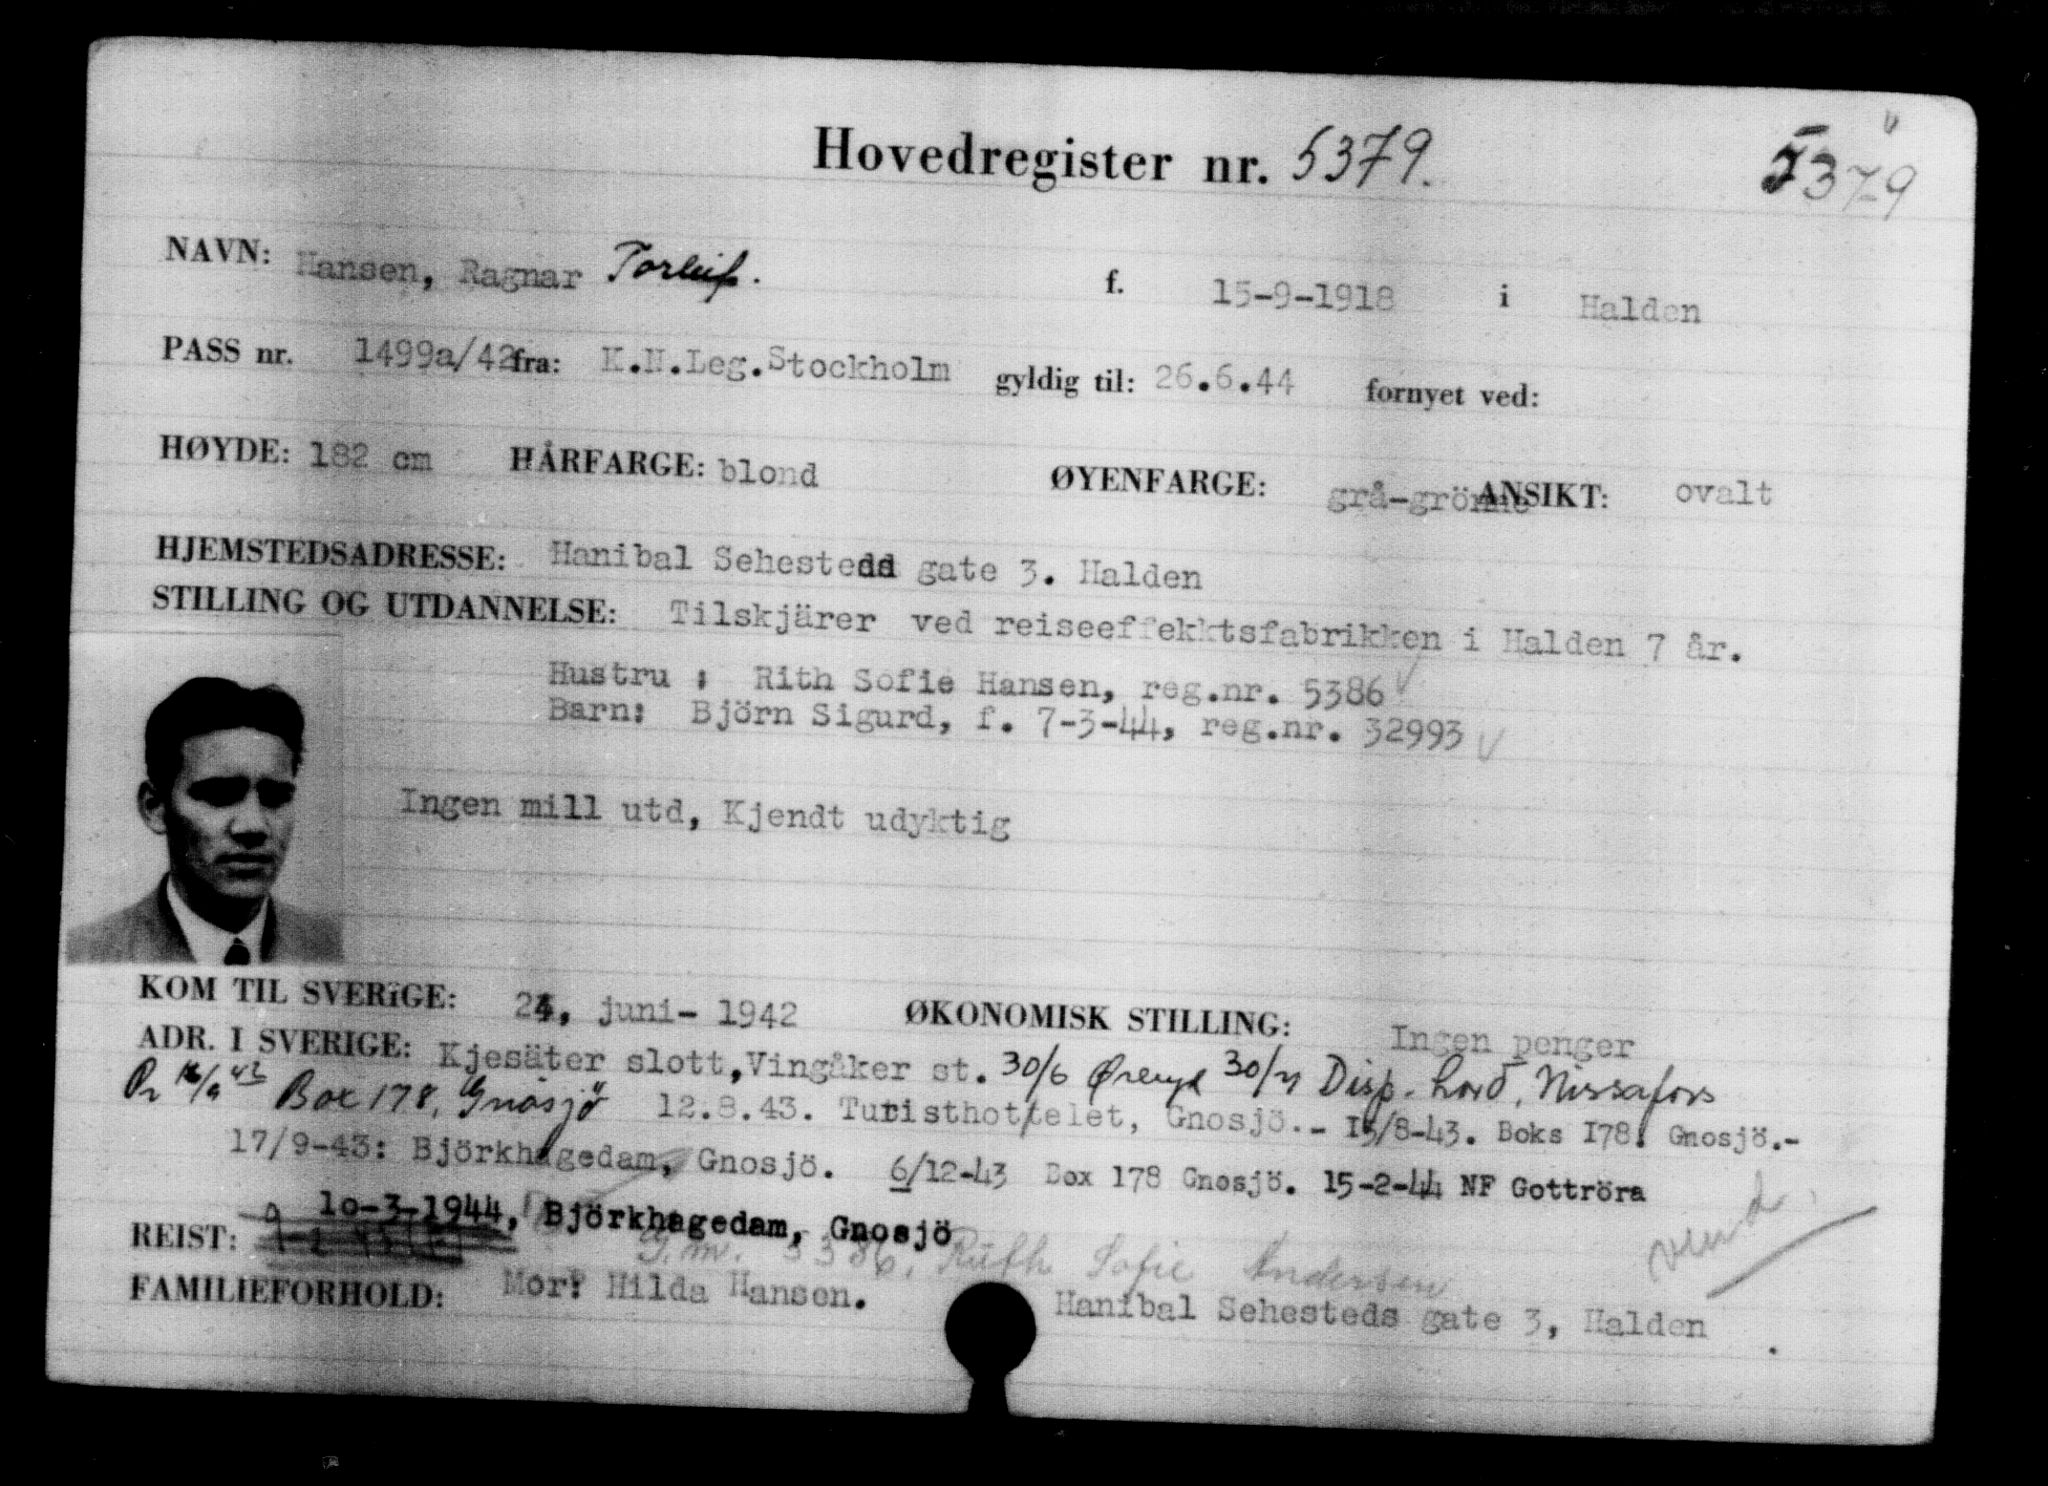 Hovedregister nr. 5379. 5379
NAVN: Hansen, Ragnar Torleif. f. 15-9-1918 i Halden
PASS nr. 1499a/42 fra: K.N.Leg.Stockholm gyldig til: 26.6.44 fornyet ved:
HØYDE: 182 cm HÅRFARGE: blond ØYENFARGE: grå-grönne ANSIKT: ovalt
HJEMSTEDSADRESSE: Hanibal Sehesteds gate 3. Halden
STILLING OG UTDANNELSE: Tilskjärer ved reiseeffekktsfabrikken i Halden 7 år.
Hustru : Rith Sofie Hansen, reg.nr. 5386
Barn: Björn Sigurd, f. 7-3-44, reg.nr. 32993
Ingen mill utd, Kjendt udyktig
KOM TIL SVERIGE: 24, juni- 1942 ØKONOMISK STILLING: Ingen penger
ADR. I SVERIGE: Kjesäter slott, Vingåker st. 30/6 Øreryd 30/11 Disp. Nissafors
Box 178, Gnosjö 12.8.43. Turisthottelet, Gnosjö.- 15/8-43. Boks 178. Gnosjö.-
17/9-43: Björkhagedam, Gnosjö. 6/12-43 Box 178 Gnosjö. 15-2-44 NF Gottröra
10-3-1944, Björkhagedam, Gnosjö
REIST:
G.m. 5386, Ruth Sofie Andersen
vend.
FAMILIEFORHOLD: Mor: Hilda Hansen. Hanibal Sehesteds gate 3, Halden